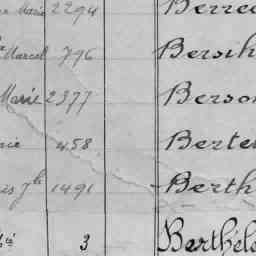 Marie 2294 Berre
Marcel 796 Bersih
Marie 2377 Berso
458 Berte
1491 Berth
3 Berthel